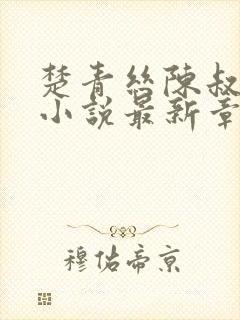 楚青丝陳叔
小說最新章
穆佑帝京